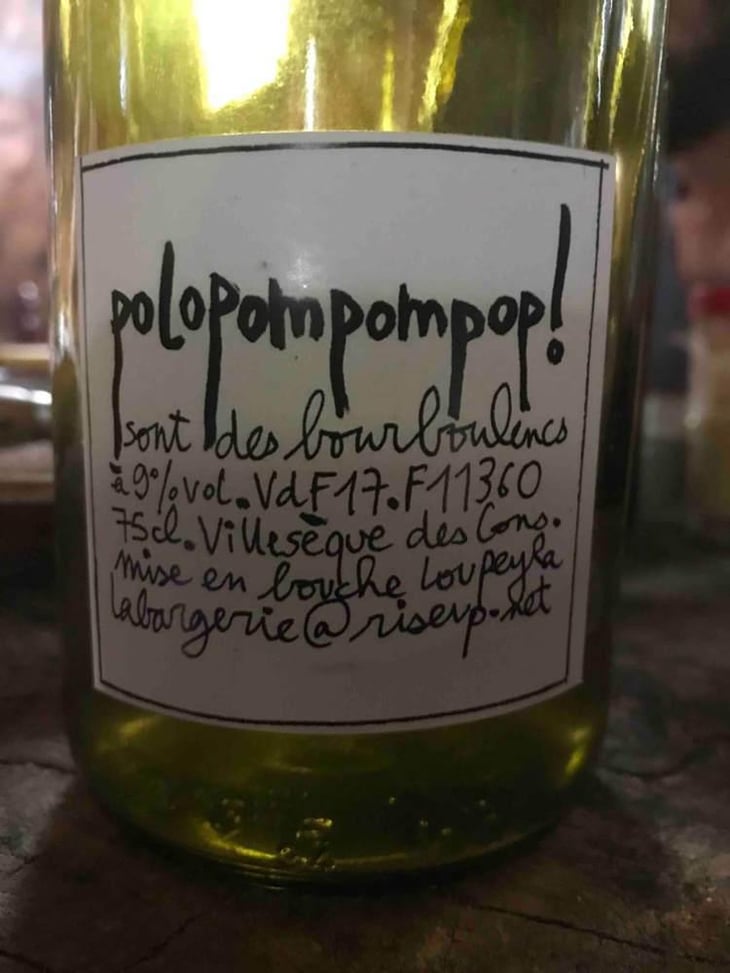 polopompompop!
sont des bourboulencs
à 9%vol. VdF17. F11360
75cl. Villesèque des Cons.
mise en bouche Loupeyla
labargerie@riseup.net